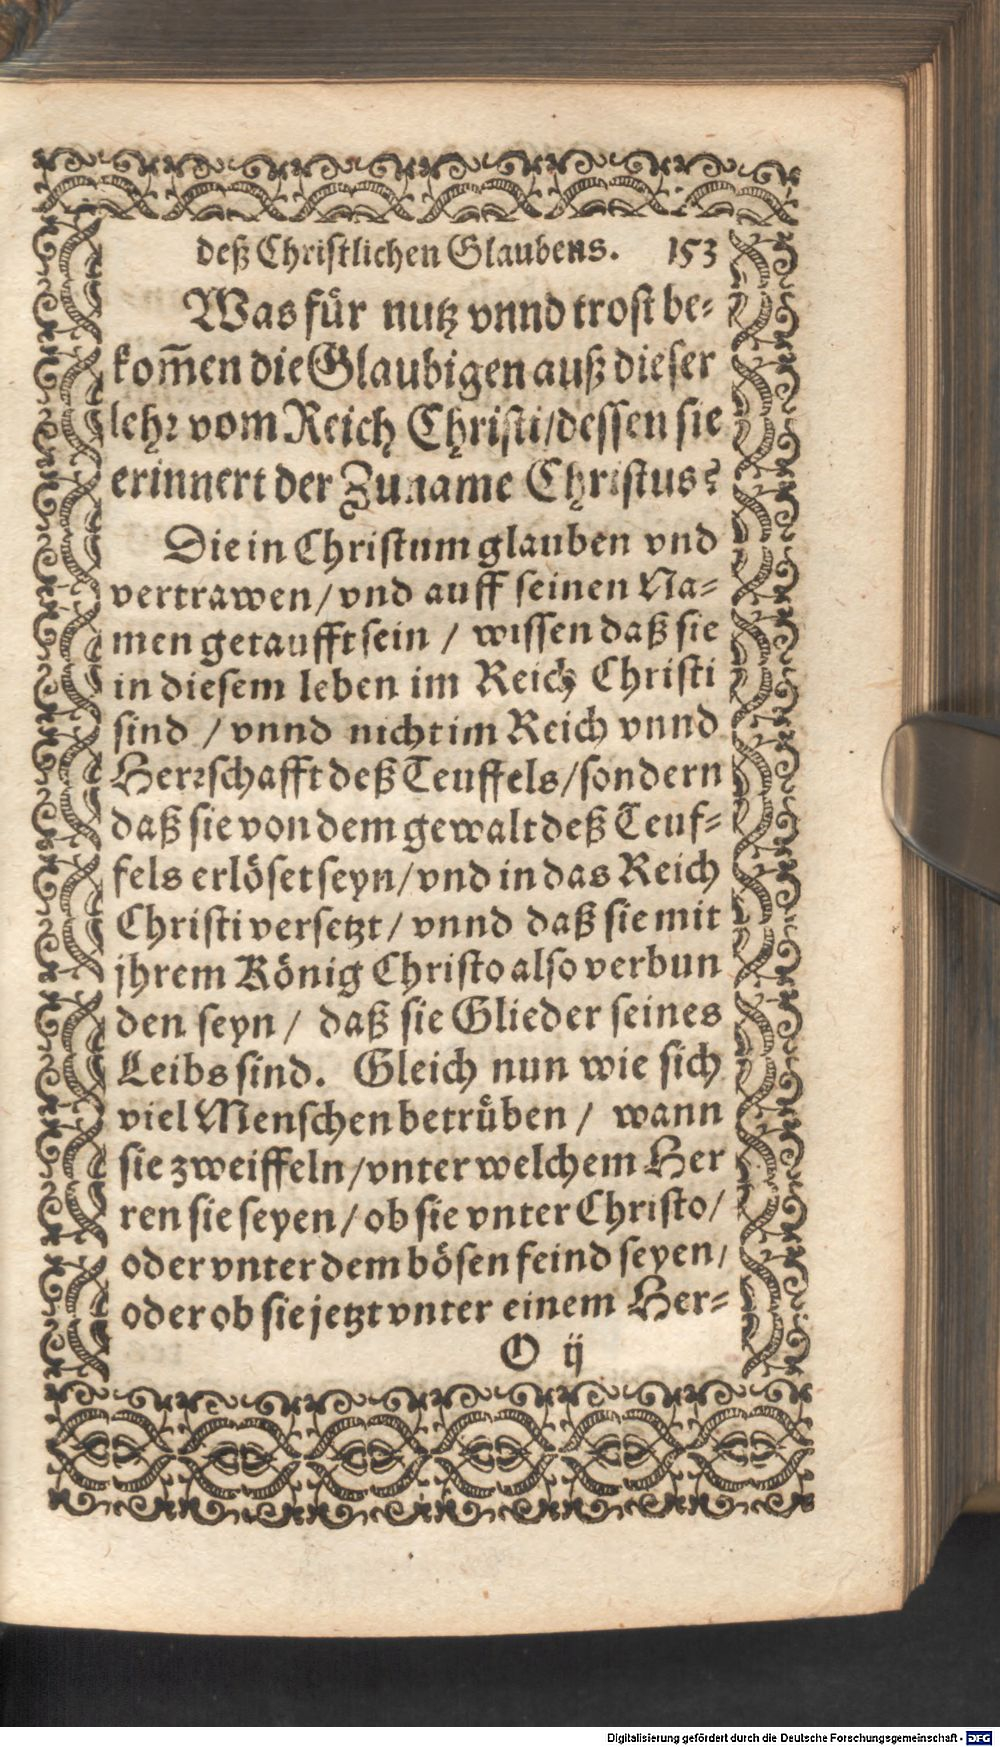 deß Christlichen Glaubens. 153
Was für nutz vnnd trost be-
kom̄en die Glaubigen auß dieser
lehr vom Reich Christi/dessen sie
erinnert der Zuname Christus?
Die in Christum glauben vnd
vertrawen/vnd auff seinen Na-
men getaufft sein / wissen daß sie
in diesem leben im Reich Christi
sind / vnnd nicht im Reich vnnd
Herrschafft deß Teuffels/sondern
daß sie von dem gewalt deß Teuf-
fels erlöset seyn/vnd in das Reich
Christi versetzt/ vnnd daß sie mit
jhrem König Christo also verbun
den seyn / daß sie Glieder seines
Leibs sind. Gleich nun wie sich
viel Menschen betrüben / wann
sie zweiffeln/vnter welchem Her
ren sie seyen/ob sie vnter Christo/
oder vnter dem bösen feind seyen/
oder ob sie jetzt vnter einem Her-
O ij
Digitalisierung gefördert durch die Deutsche Forschungsgemeinschaft - DFG